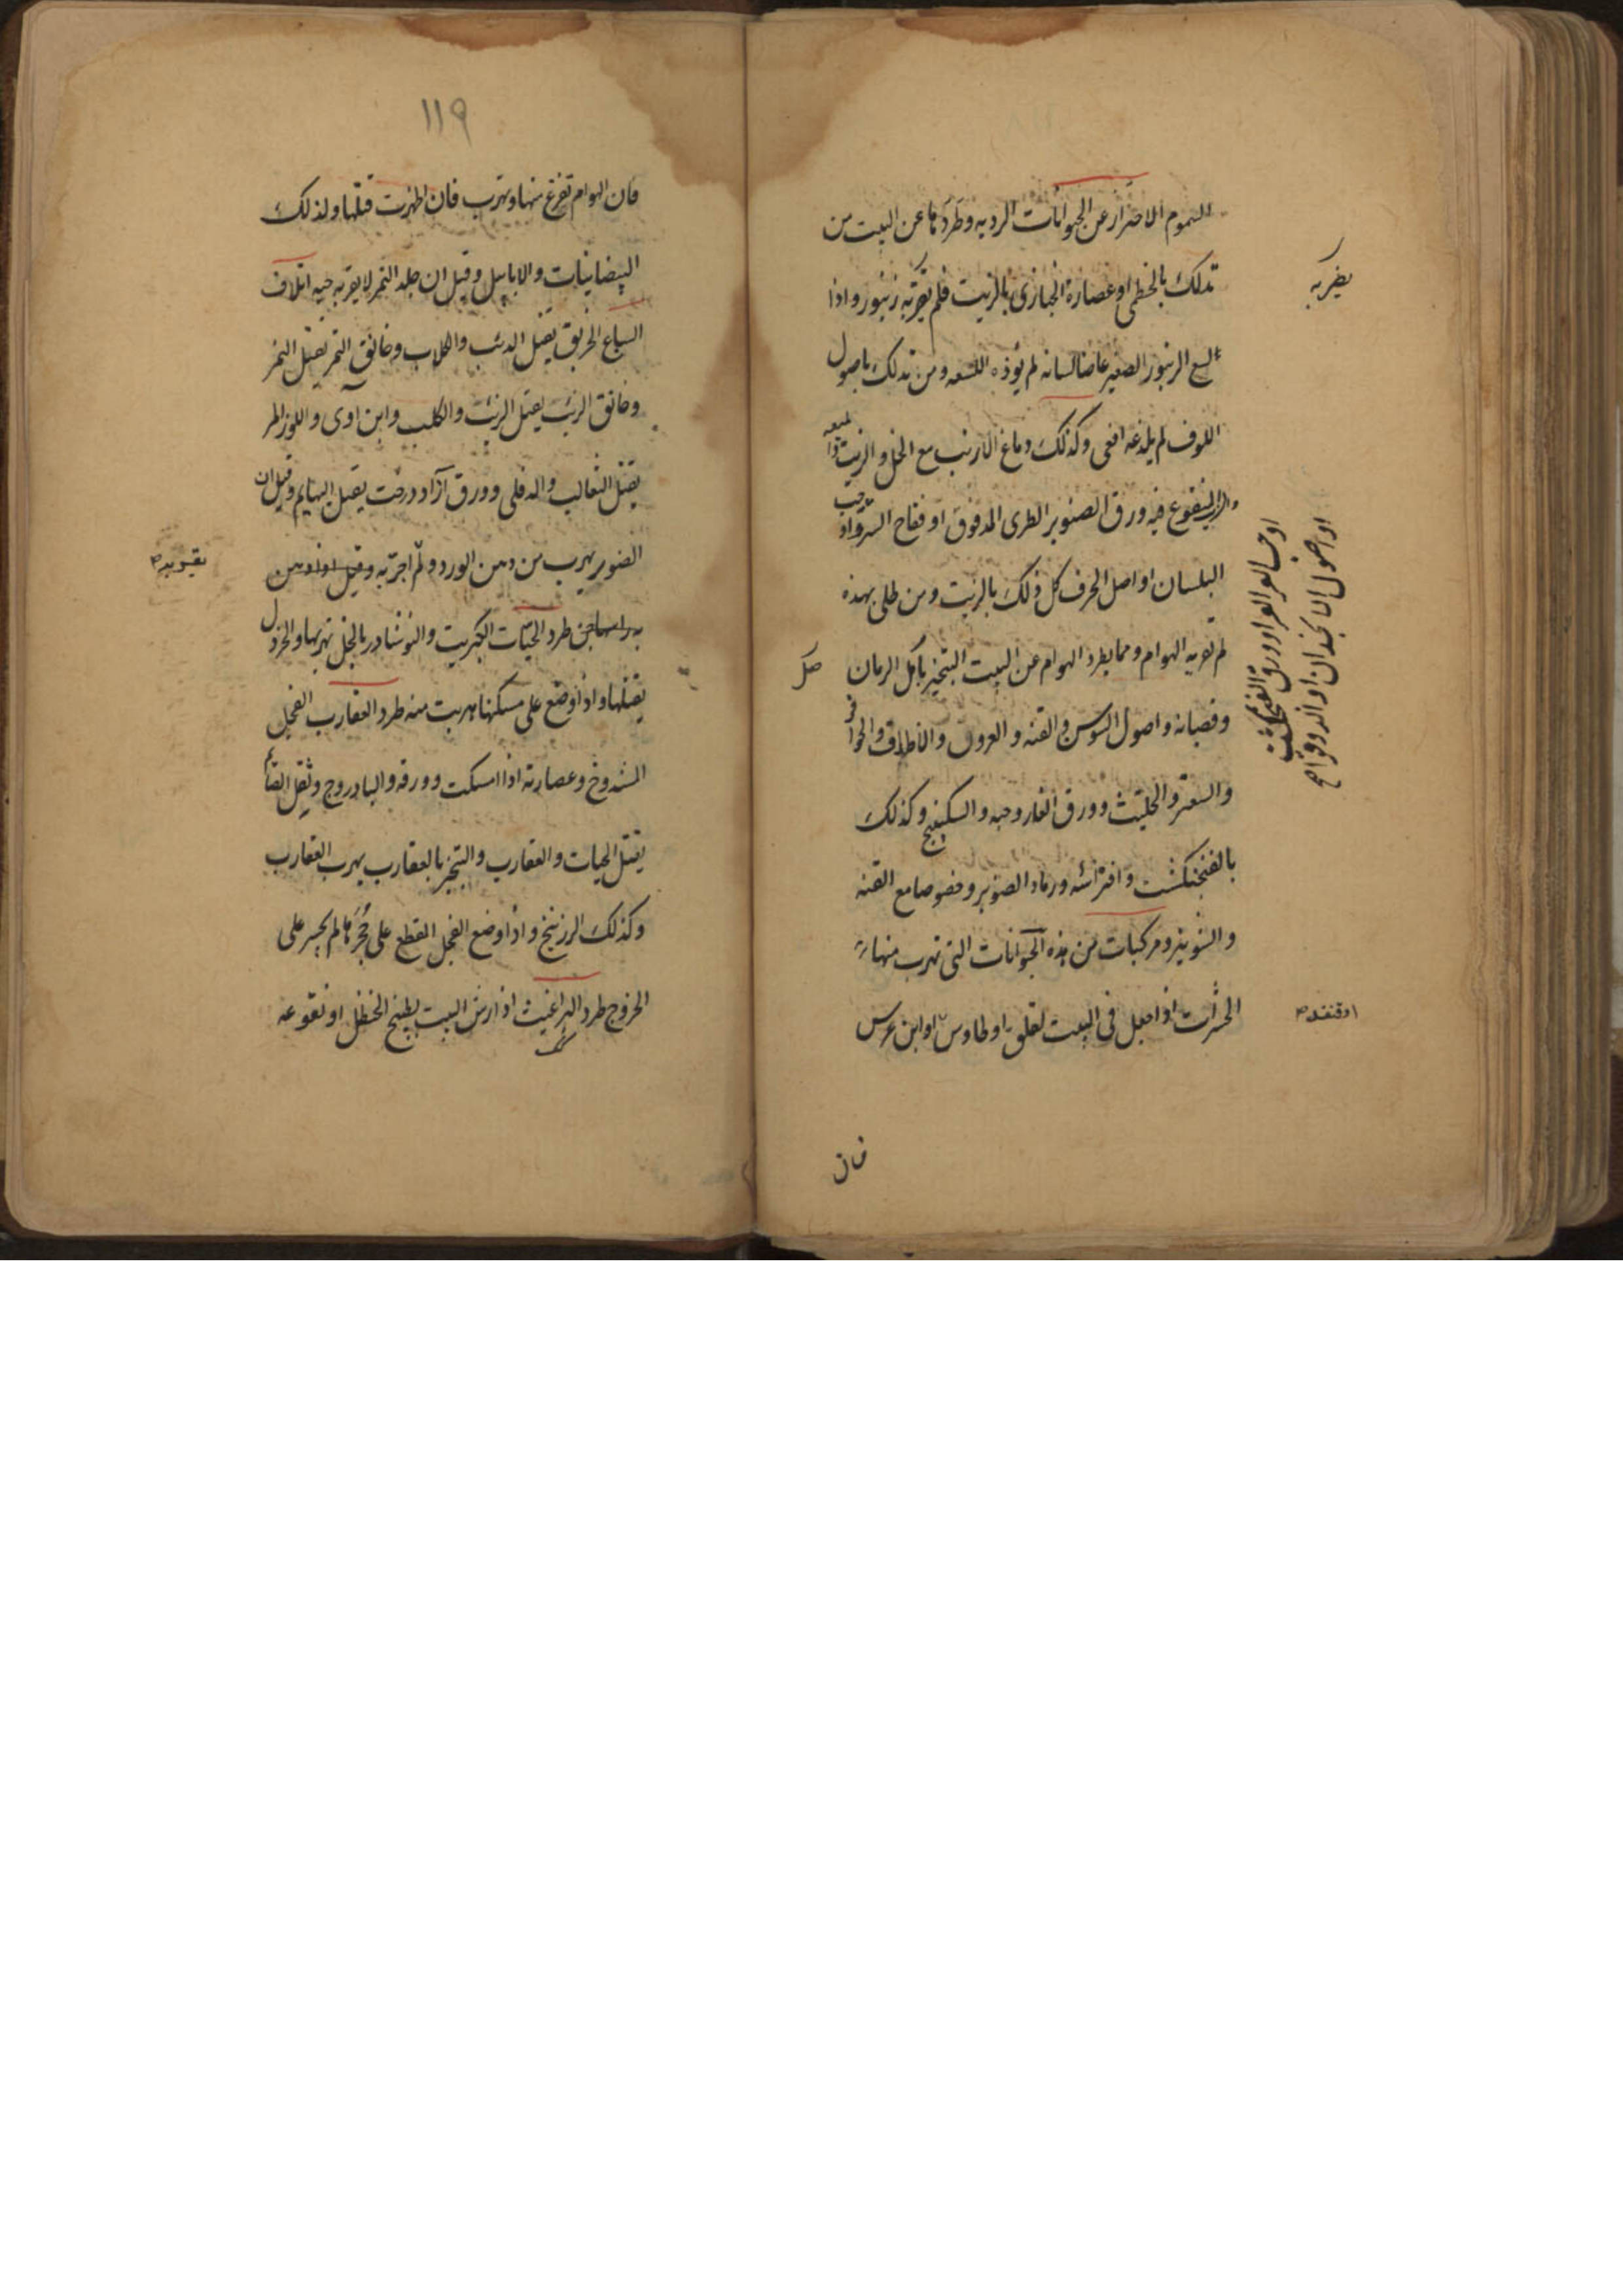 السموم الاحتراز عن الحيوانات الرديه وطردها عن البيت من
تدلك بالخطمى او عصارة الخبازى بالزيت فلم يقربه زنبور واذا
لسع الزنبور الصغير عاضا لسانه لم يؤذه اللسعه ومن تدلك باصول
اللوف لم يلدغه افعى وكذلك دماغ الارنب مع الخل والزيت
المنقوع فيه ورق الصنوبر الطرى المدقوق او فقاح السرو او حب
البلسان او اصل الحرف كل ذلك بالزيت ومن طلى بهذه
لم تقربه الهوام ومما يطرد الهوام عن البيت التبخير باكل الرمان
وقضبانه واصول السوس والقنه والقرون والاظلاف والحوافر
والسعتر والحلتيث وورق الغار وحبه والسكبينج وكذلك
بالفنجنكشت وافتراشه ورماد الصنوبر وخصوصا مع القنه
والشونيز ومركبات من هذه الحيوانات التى تهرب منها
الحشرات اذا جعل فى البيت لقلق او طاوس او ابن عرس
يضر به
او قنفذ
او اصول الانجدان او الدوقوا مع
فان
١١٩
فان الهوام تفزع منها وتهرب فان ظهرت قتلها ولذلك
البيضانيات والابابيل وقيل ان جلد النمر لا يقربه حيه اتلاف
السباع الخربق يقتل الذئب والكلاب وخانق النمر يقتل النمر
وخانق الذئب يقتل الذئب والكلب وابن اوى واللوز المر
يقتل الثعالب والدفلى وورق آزاد درخت يقتل البهايم وقيل ان
يهرب من دهن الورد ولم اجربه وقيل
طرد الحيّات الكبريت والنوشادر بالخل تهربها والخردل
يقتلها واذا وضع على مسكنها هربت منه طرد العقارب الفجل
المشدوخ وعصارته اذا امسكت وورقه والبادروج وتفل الصائم
يقتل الحيات والعقارب والتبخر بالعقارب يهرب العقارب
وكذلك الزرنيخ واذا وضع الفجل القطع على جُحرها لم يجسر على
الخروج طرد البراغيث اذا رش البيت بطبيخ الحنظل او نقوعه